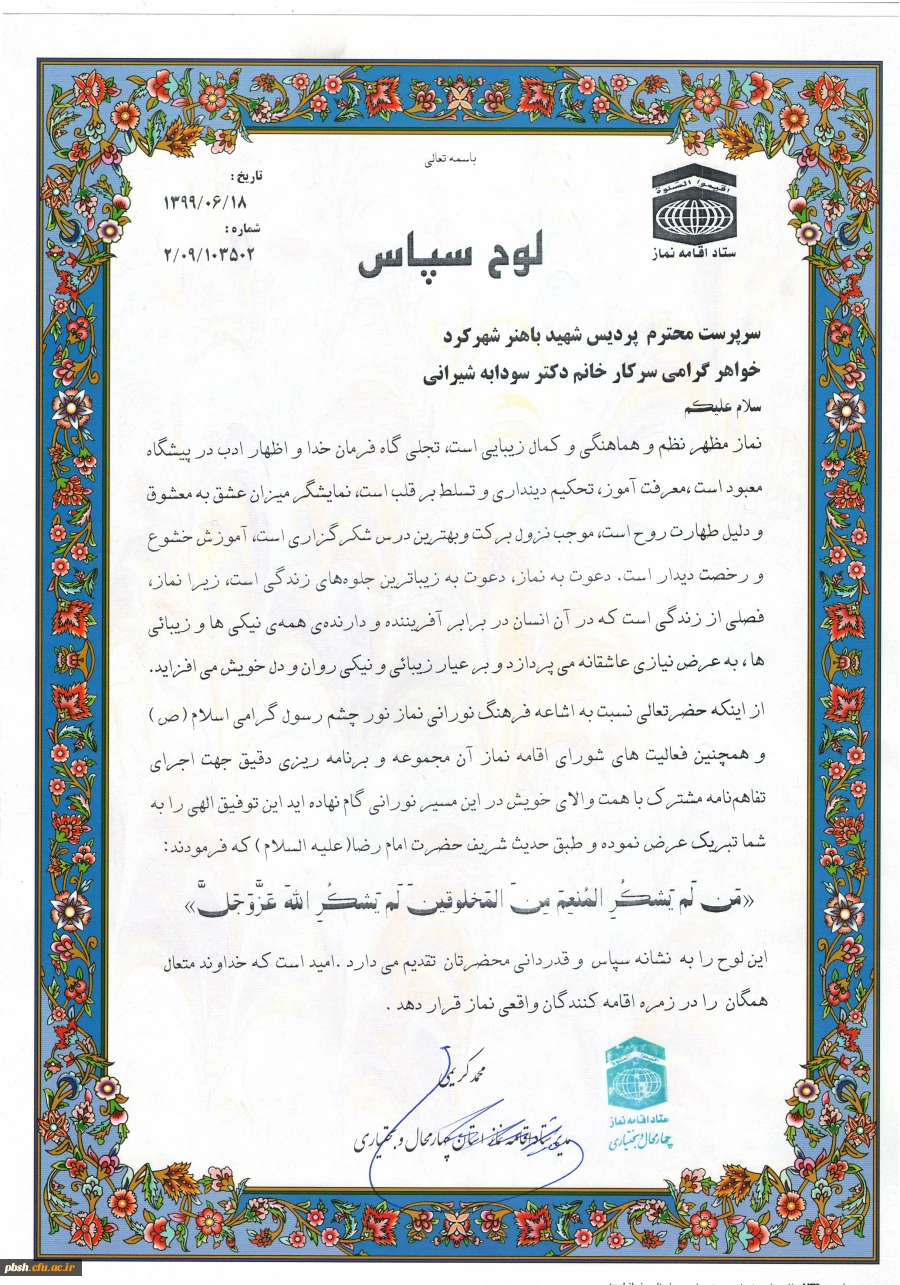 باسمه تعالی
اقیموا الصلوة
ستاد اقامه نماز
تاریخ :
۱۳۹۹/۰۶/۱۸
شماره :
۲/۰۹/۱۰۳۵۰۲
لوح سپاس
سرپرست محترم پردیس شهید باهنر شهرکرد
خواهر گرامی سرکار خانم دکتر سودابه شیرانی
سلام علیکم
نماز مظهر نظم و هماهنگی و کمال زیبایی است، تجلی گاه فرمان خدا و اظهار ادب در پیشگاه
معبود است ،معرفت آموز، تحکیم دینداری و تسلط بر قلب است، نمایشگر میزان عشق به معشوق
و دلیل طهارت روح است، موجب نزول برکت وبهترین درس شکرگزاری است، آموزش خشوع
و رخصت دیدار است. دعوت به نماز، دعوت به زیباترین جلوه‌های زندگی است، زیرا نماز،
فصلی از زندگی است که در آن انسان در برابر آفریننده و دارنده‌ی همه‌ی نیکی ها و زیبائی
ها ، به عرض نیازی عاشقانه می پردازد و بر عیار زیبائی و نیکی روان و دل خویش می افزاید.
از اینکه حضرتعالی نسبت به اشاعه فرهنگ نورانی نماز نور چشم رسول گرامی اسلام (ص)
و همچنین فعالیت های شورای اقامه نماز آن مجموعه و برنامه ریزی دقیق جهت اجرای
تفاهم‌نامه مشترک با همت والای خویش در این مسیر نورانی گام نهاده اید این توفیق الهی را به
شما تبریک عرض نموده و طبق حدیث شریف حضرت امام رضا(علیه السلام) که فرمودند:
«مَن لَم یَشکُرِ المُنعِمَ مِنَ المَخلوقینَ لَم یَشکُرِ اللهَ عَزَّوَجَلَّ»
این لوح را به نشانه سپاس و قدردانی محضرتان تقدیم می دارد .امید است که خداوند متعال
همگان را در زمره اقامه کنندگان واقعی نماز قرار دهد .
محمد کریمی
مدیر ستاد اقامه نماز استان چهارمحال و بختیاری
ستاد اقامه نماز
چهارمحال و بختیاری
pbsh.cfu.ac.ir